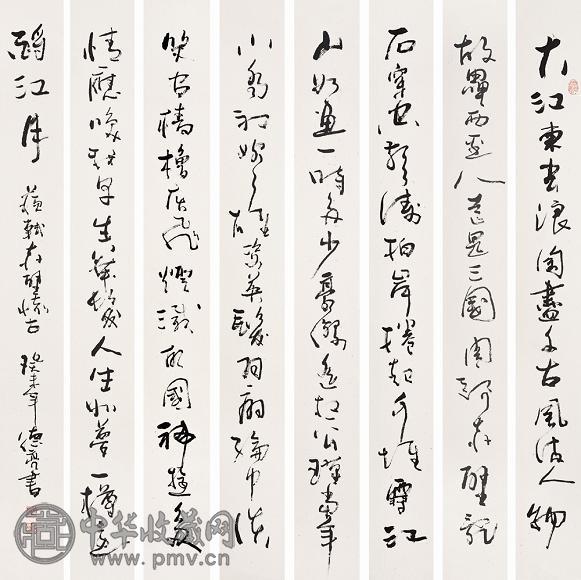 大江東去浪淘盡千古風流人物
故壘西邊人道是三國周郎赤壁亂
石穿空驚濤拍岸捲起千堆雪江
山如畫一時多少豪傑遙想公瑾當年
小喬初嫁了雄姿英發羽扇綸巾談
笑間檣櫓灰飛煙滅故國神遊多
情應笑我早生華髮人生如夢一樽還
酹江月 蘇軾赤壁懷古 癸未年 德亮書
中华收藏网
www.pmv.cn